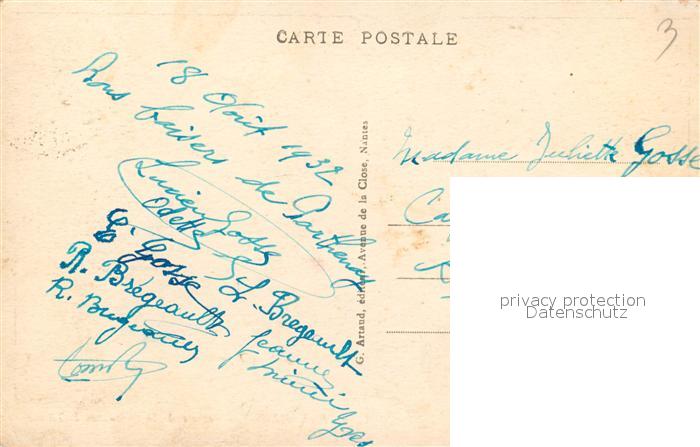 CARTE POSTALE
3
18 Août 1932
Bons baisers de Parthenay
Lucien Gosse
Odette
E. Gosse
L. Bregeault
R. Brégeault
Jeanne
G. Artaud, éditeur, Avenue de la Close, Nantes
Madame Juliette Gosse
privacy protection
Datenschutz